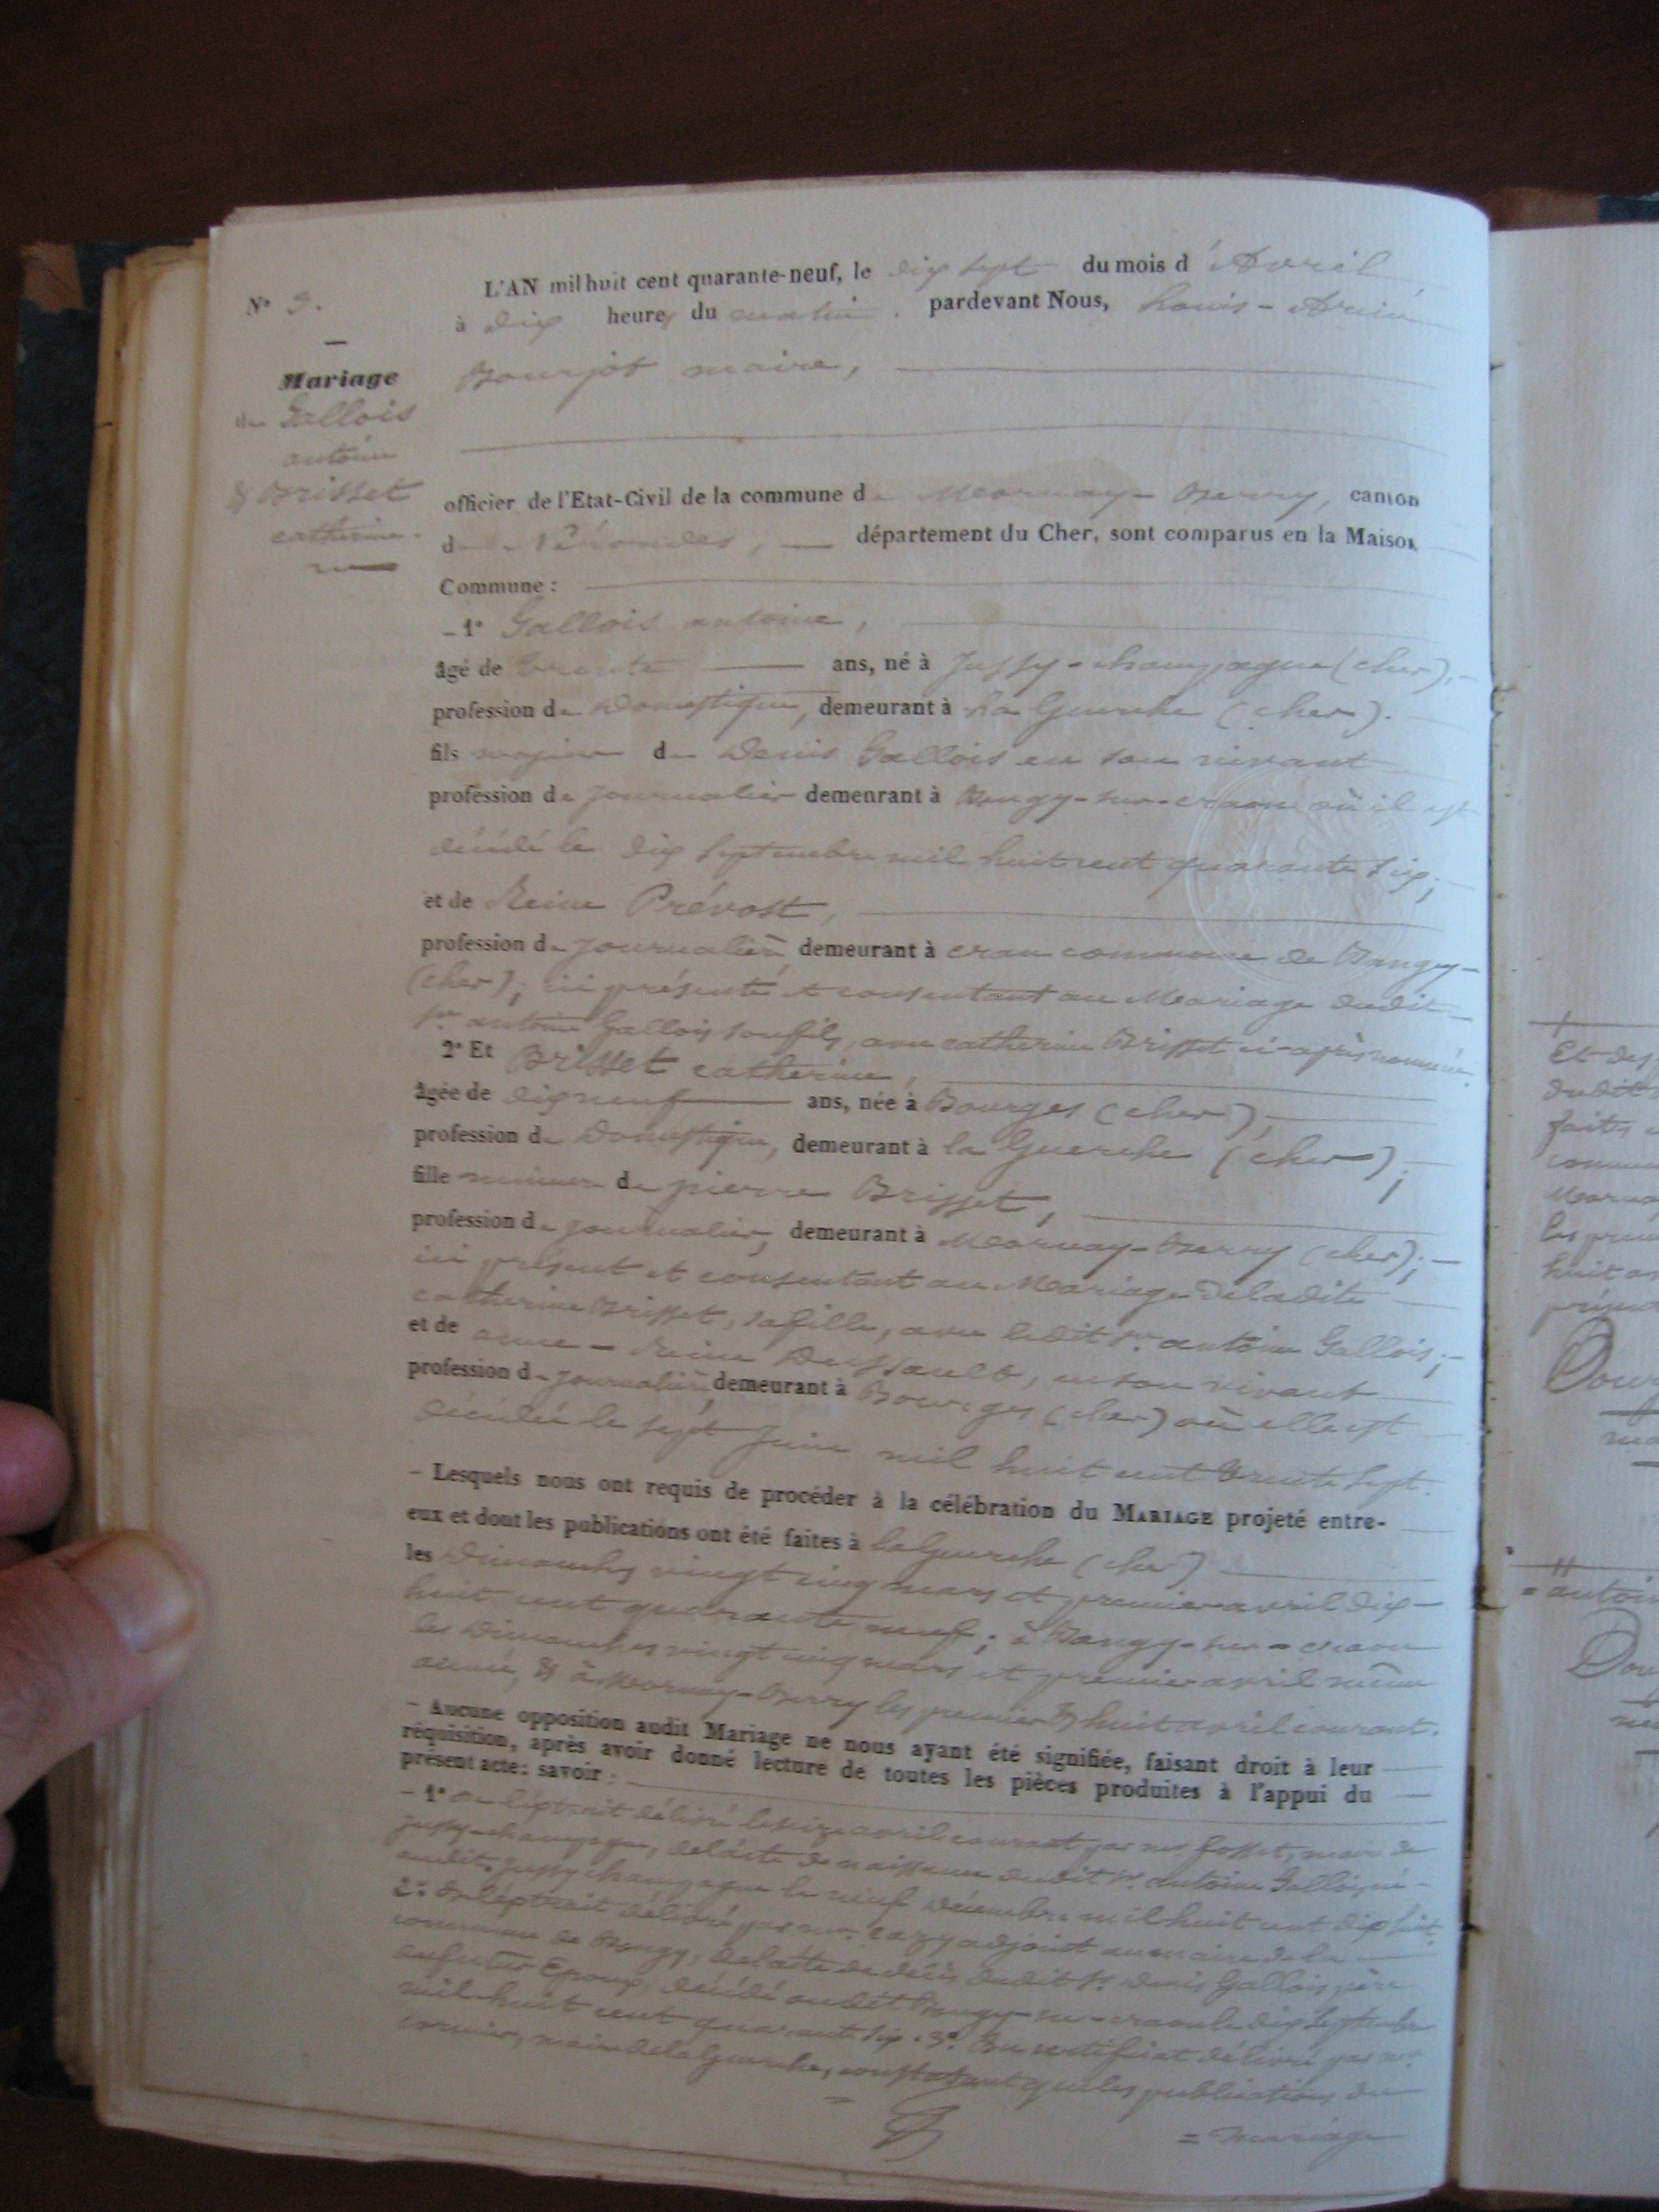 N° 3.
Mariage
de Gallois
antoine
& Brisset
catherine.
L'AN mil huit cent quarante-neuf, le dix sept du mois d'Avril
à dix heures du matin. pardevant Nous, Louis-
Bourjot maire,
officier de l'Etat-Civil de la commune de Mornay-Berry, canton
de Nérondes, département du Cher, sont comparus en la Maison
Commune :
– 1° Gallois antoine,
âgé de trente ans, né à Jussy-champagne (cher),
profession de Domestique, demeurant à La Guerche (cher).
fils majeur de Denis Gallois en son vivant
profession de journalier demeurant à Bengy-sur-craon où il est
décédé le dix septembre mil huit cent quarante six;
et de Reine Prévost,
profession de journalière demeurant à craon commune de Bengy-
(cher); ici présente et consentant au Mariage dudit
Sr antoine Gallois son fils, avec catherine Brisset ci-après nommée.
2° Et Brisset catherine,
âgée de dix neuf ans, née à Bourges (cher),
profession de Domestique, demeurant à la Guerche (cher);
fille mineure de pierre Brisset,
profession de journalier, demeurant à Mornay-Berry (cher);
ici présent et consentant au Mariage de ladite
catherine Brisset, sa fille, avec ledit Sr. antoine Gallois;
et de anne-Reine Dussault, en son vivant
profession de journalière demeurant à Bourges (cher) où elle est
décédée le sept Juin mil huit cent trente sept.
– Lesquels nous ont requis de procéder à la célébration du MARIAGE projeté entre-
eux et dont les publications ont été faites à la Guerche (cher)
les Dimanches vingt cinq mars et premier avril dix-
huit cent quarante neuf; à Bengy-sur-craon
les Dimanches vingt cinq mars et premier avril même
année, & à Mornay-Berry les premier & huit avril courant.
– Aucune opposition audit Mariage ne nous ayant été signifiée, faisant droit à leur
réquisition, après avoir donné lecture de toutes les pièces produites à l'appui du
présent acte: savoir :
– 1° De l'extrait délivré le seize avril courant par mr fosset, maire de
jussy-champagne, de l'acte de naissance dudit Sr. antoine Gallois, né
audit jussy champagne le neuf Décembre mil huit cent dix huit.
2° De l'extrait délivré par mr. adjoint au maire de la
commune de Bengy, de l'acte de décès dudit Sr Denis Gallois, père
du futur Epoux, décédé audit Bengy-sur-craon le dix septembre
mil huit cent quarante six. 3° Du certificat délivré par mr.
maire de la Guerche, constatant que les publications du
= mariage
Et des
dudit
faites
Mornay
les prem
huit a
présent
Bour
ma
= antoin
Bou